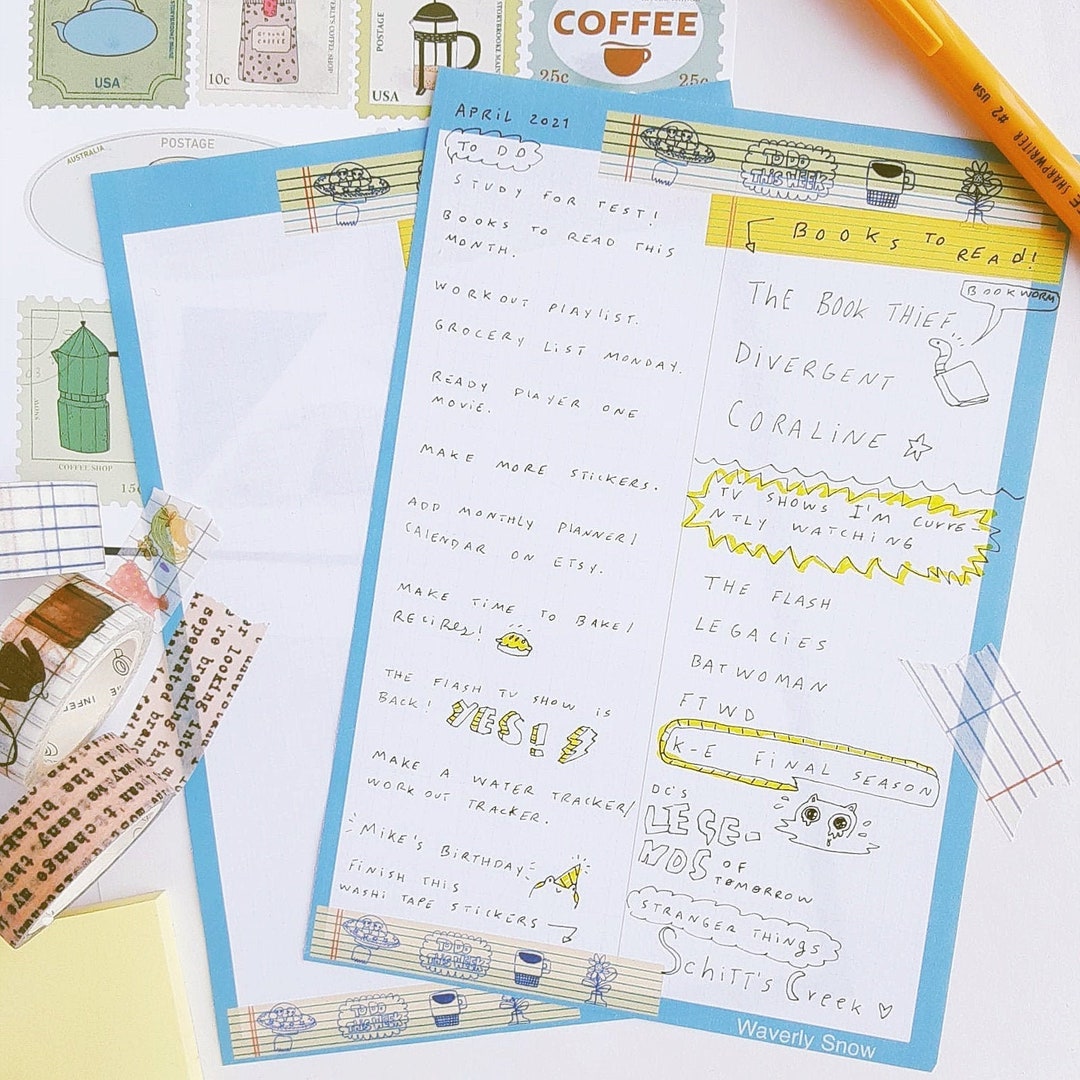 USA
10c
Ground
COFFEE
POSTAGE
USA
COFFEE
25c
25c
AUSTRALIA
POSTAGE
COFFEE SHOP
15c
SHARPWRITER #2 USA
APRIL 2021
TO DO
STUDY FOR TEST!
BOOKS TO READ THIS
MONTH.
WORKOUT PLAYLIST.
GROCERY LIST MONDAY.
READY PLAYER ONE
MOVIE.
MAKE MORE STICKERS.
ADD MONTHLY PLANNER/
CALENDAR ON ETSY.
MAKE TIME TO BAKE/
RECIPES!
THE FLASH TV SHOW IS
BACK! YES!
MAKE A WATER TRACKER/
WORK OUT TRACKER.
MIKE'S BIRTHDAY
FINISH THIS
WASHI TAPE STICKERS
TO DO
THIS WEEK
BOOKS TO
READ!
BOOKWORM
THE BOOK THIEF
DIVERGENT
CORALINE
TV SHOWS I'M CURRE-
NTLY WATCHING
THE FLASH
LEGACIES
BATWOMAN
FTWD
K-E FINAL SEASON
DC'S
LEGE-
NDS OF
TOMORROW
STRANGER THINGS
Schitt's Creek
TO DO
THIS WEEK
TO DO
THIS WEEK
Waverly Snow